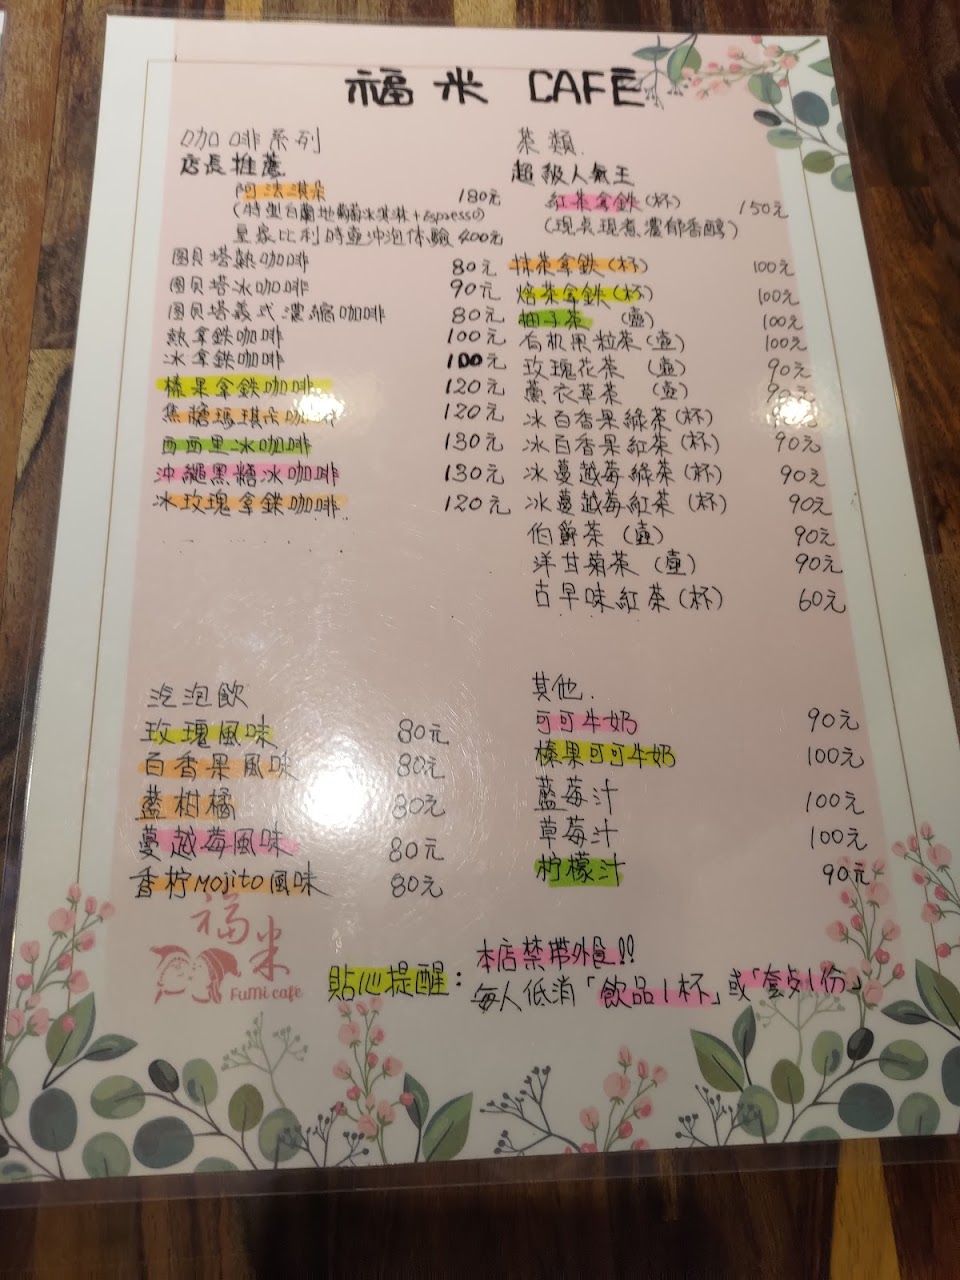 福米 CAFE
咖啡系列
店長推薦
阿法淇朵 180元
(特製白蘭地葡萄冰淇淋+Espresso)
皇家比利時壺沖泡体驗 400元
图貝塔熱咖啡 80元
图貝塔冰咖啡 90元
图貝塔義式濃縮咖啡 80元
熱拿鉄咖啡 100元
冰拿鉄咖啡 100元
榛果拿鉄咖啡 120元
焦糖瑪琪朵咖啡 120元
西西里冰咖啡 130元
沖繩黑糖冰咖啡 130元
冰玫瑰拿鉄咖啡 120元
茶類
超級人氣王
紅茶拿鉄(杯) 150元
(現点現煮濃郁香醇)
抹茶拿鉄(杯) 100元
焙茶拿鉄(杯) 100元
柚子茶 (壺) 100元
有机果粒茶(壺) 100元
玫瑰花茶 (壺) 90元
薰衣草茶 (壺) 90元
冰百香果綠茶(杯)
冰百香果紅茶(杯) 90元
冰蔓越莓綠茶(杯) 90元
冰蔓越莓紅茶(杯) 90元
伯爵茶 (壺) 90元
洋甘菊茶 (壺) 90元
古早味紅茶(杯) 60元
汽泡飲
玫瑰風味 80元
百香果風味 80元
薑柑橘 80元
蔓越莓風味 80元
香柠Mojito風味 80元
其他.
可可牛奶 90元
榛果可可牛奶 100元
藍莓汁 100元
草莓汁 100元
柠檬汁 90元
福米
FuMi cafe
貼心提醒:
本店禁帶外食!!
每人低消「飲品1杯」或「套点1份」